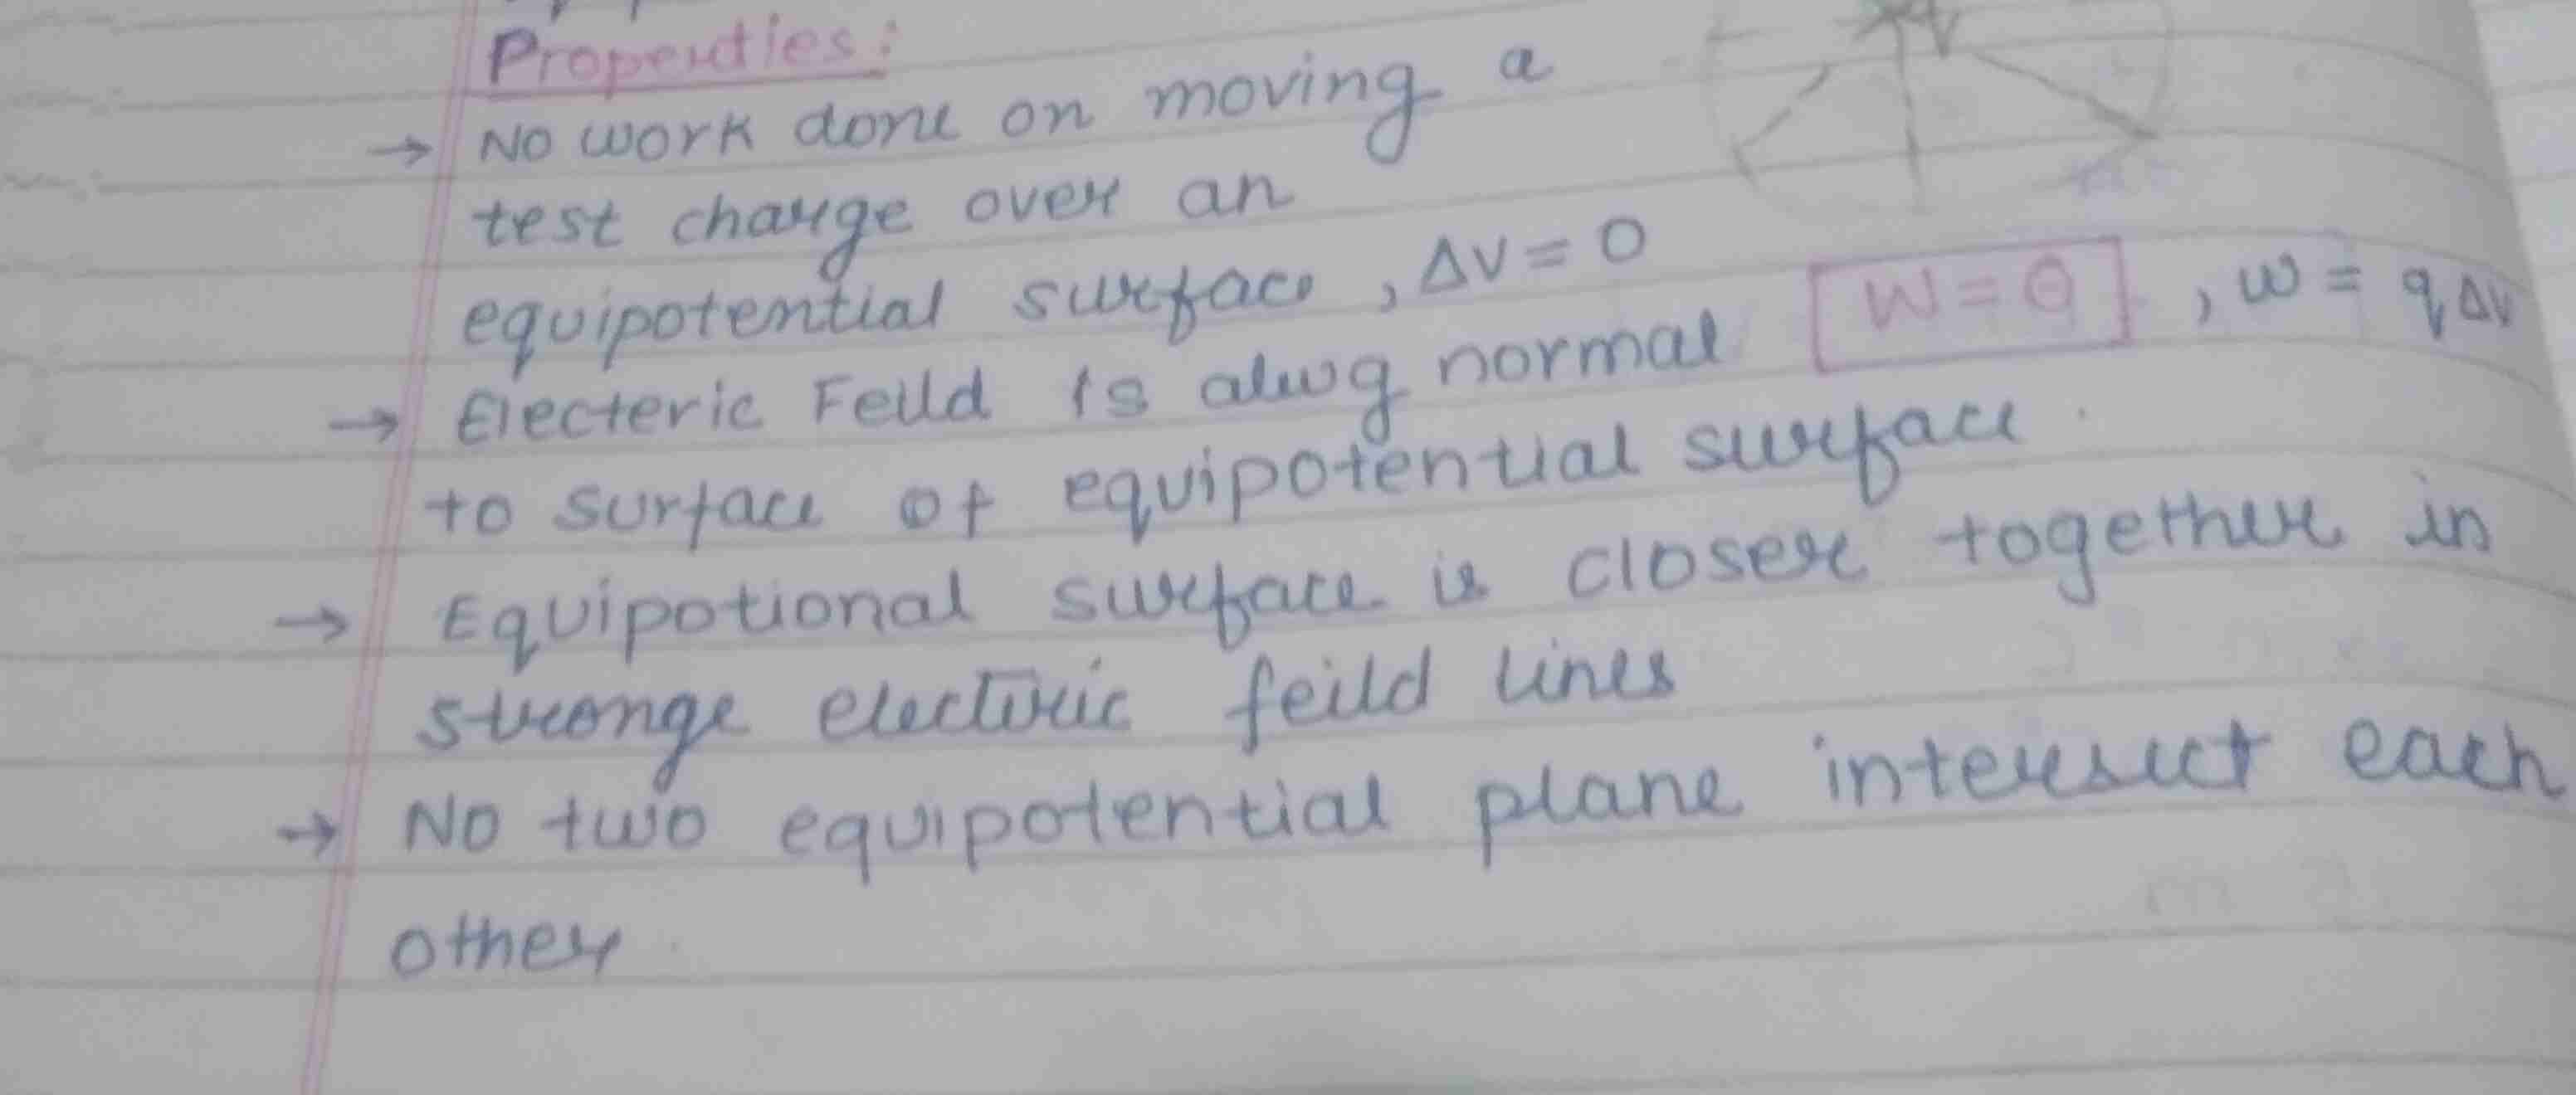 Properties:
→ No work done on moving a
test charge over an
equipotential surface, ΔV = 0
W = 0, w = qΔV
→ Electeric Feild is alwg normal
to surface of equipotential surface.
→ Equipotional surface is closer together in
stronge electric feild lines
→ No two equipotential plane intersect each
other